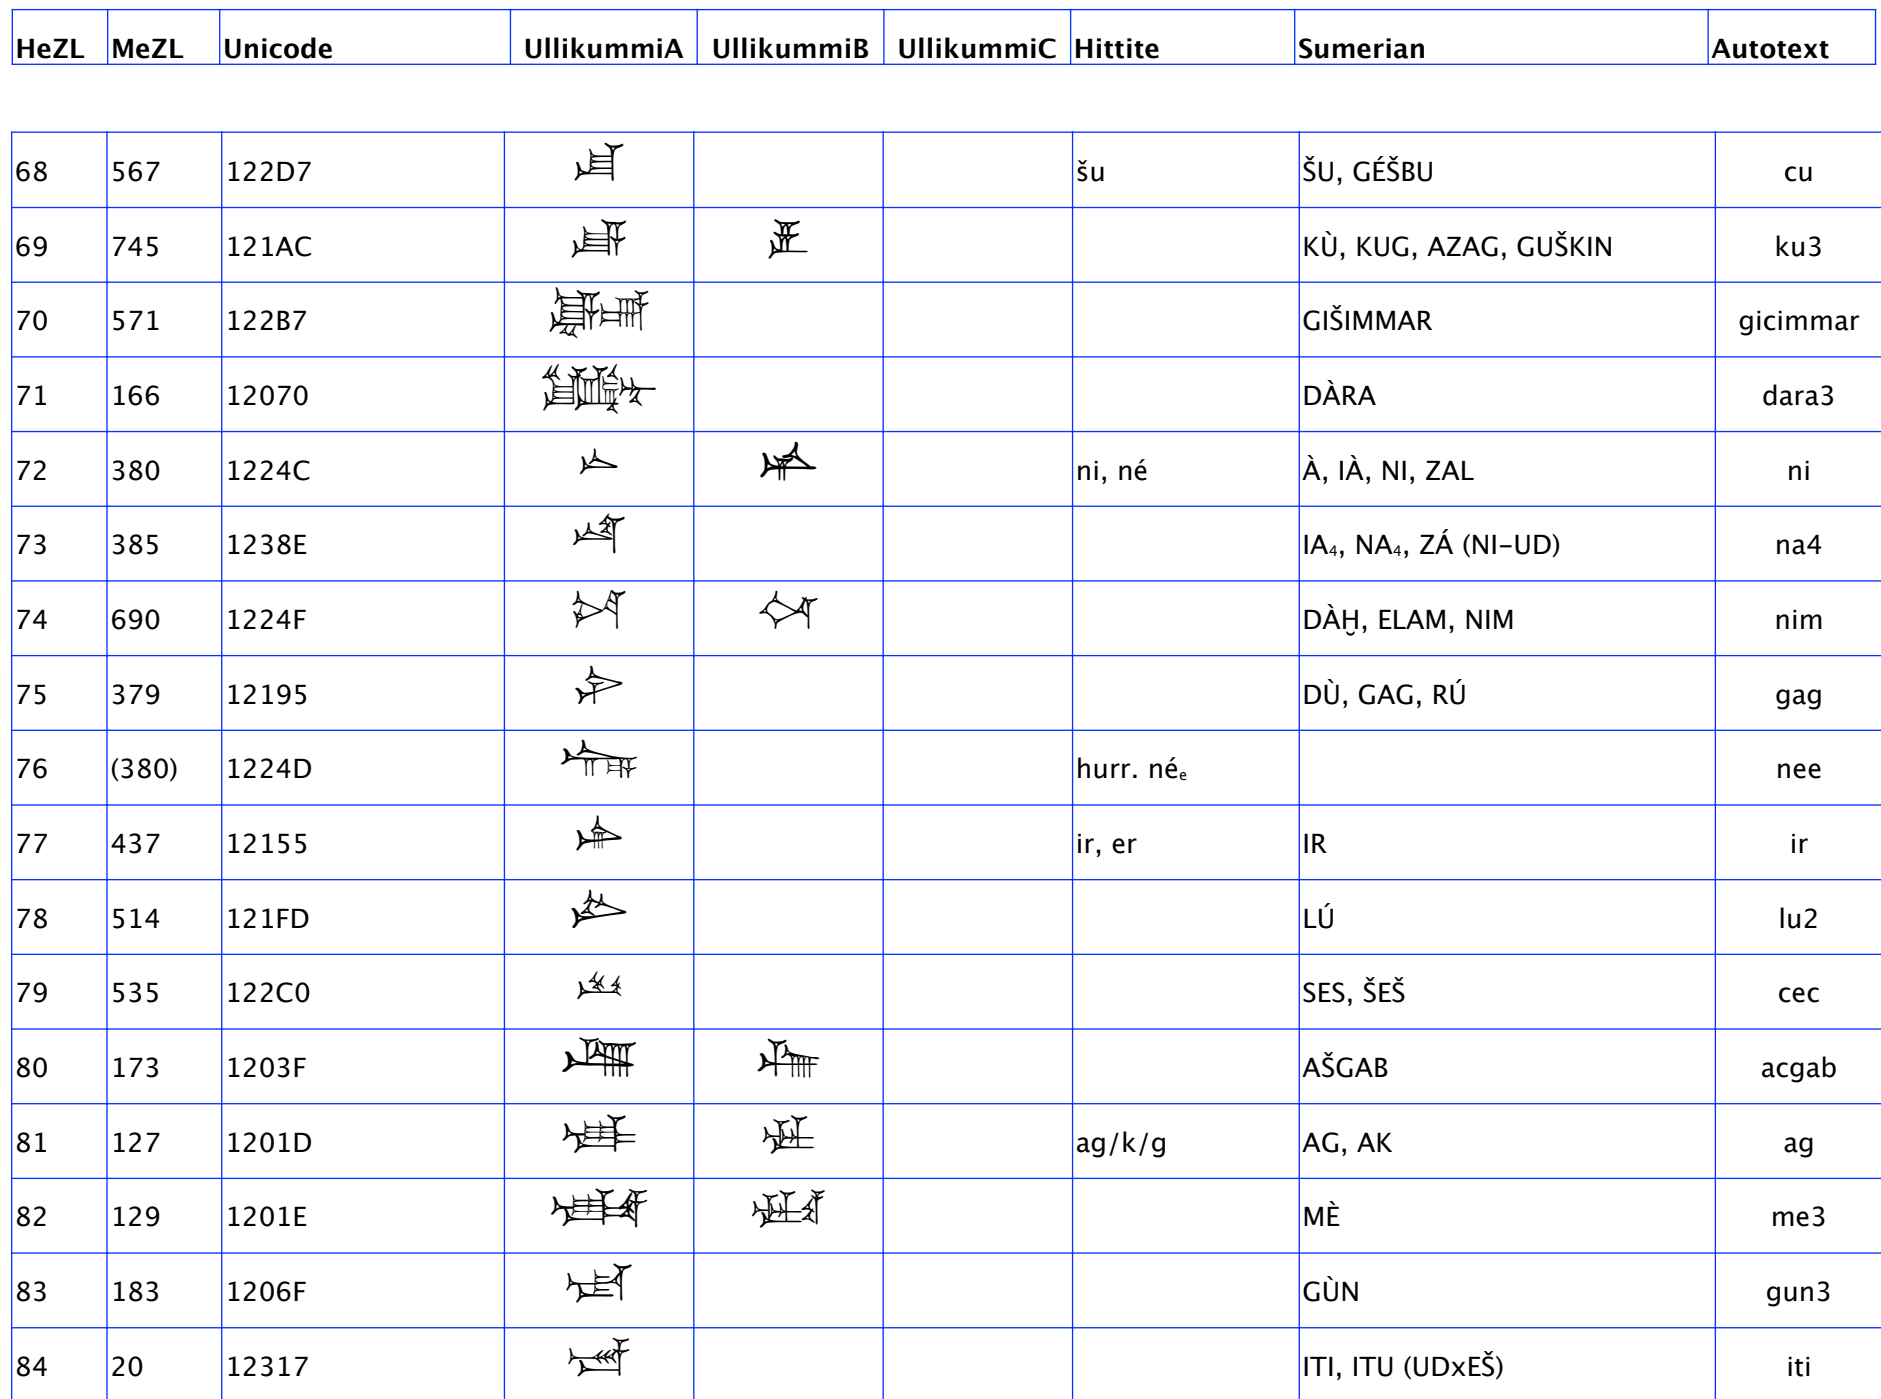 HeZL MeZL Unicode UllikummiA UllikummiB UllikummiC Hittite Sumerian Autotext
68 567 122D7 𒋗 šu ŠU, GÉŠBU cu
69 745 121AC 𒆬 𒆬 KÙ, KUG, AZAG, GUŠKIN ku3
70 571 122B7 𒊷 GIŠIMMAR gicimmar
71 166 12070 𒁰 DÀRA dara3
72 380 1224C 𒉌 𒉌 ni, né À, IÀ, NI, ZAL ni
73 385 1238E 𒎎 IA₄, NA₄, ZÁ (NI-UD) na4
74 690 1224F 𒉏 𒉏 DÀḪ, ELAM, NIM nim
75 379 12195 𒆕 DÙ, GAG, RÚ gag
76 (380) 1224D 𒉍 hurr. néₑ nee
77 437 12155 𒅕 ir, er IR ir
78 514 121FD 𒇽 LÚ lu2
79 535 122C0 𒋀 SES, ŠEŠ cec
80 173 1203F 𒀿 𒀿 AŠGAB acgab
81 127 1201D 𒀝 𒀝 ag/k/g AG, AK ag
82 129 1201E 𒀞 𒀞 MÈ me3
83 183 1206F 𒁯 GÙN gun3
84 20 12317 𒌗 ITI, ITU (UDxEŠ) iti